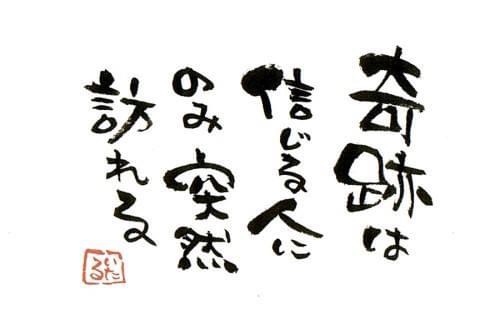 奇跡は
信じる人に
のみ突然
訪れる
いたる